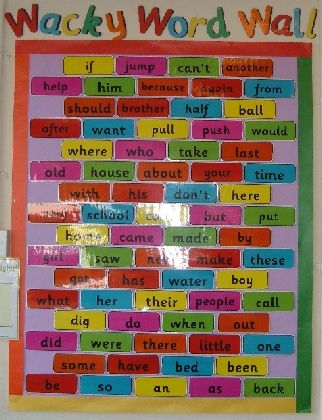 Wacky Word Wall
if jump can't another
help him because again from
should brother half ball
after want pull push would
where who take last
old house about your time
with his don't here
school but put
came made by
girl saw make these
got has water boy
what her their people call
dig do when out
did were there little one
some have bed been
be so an as back